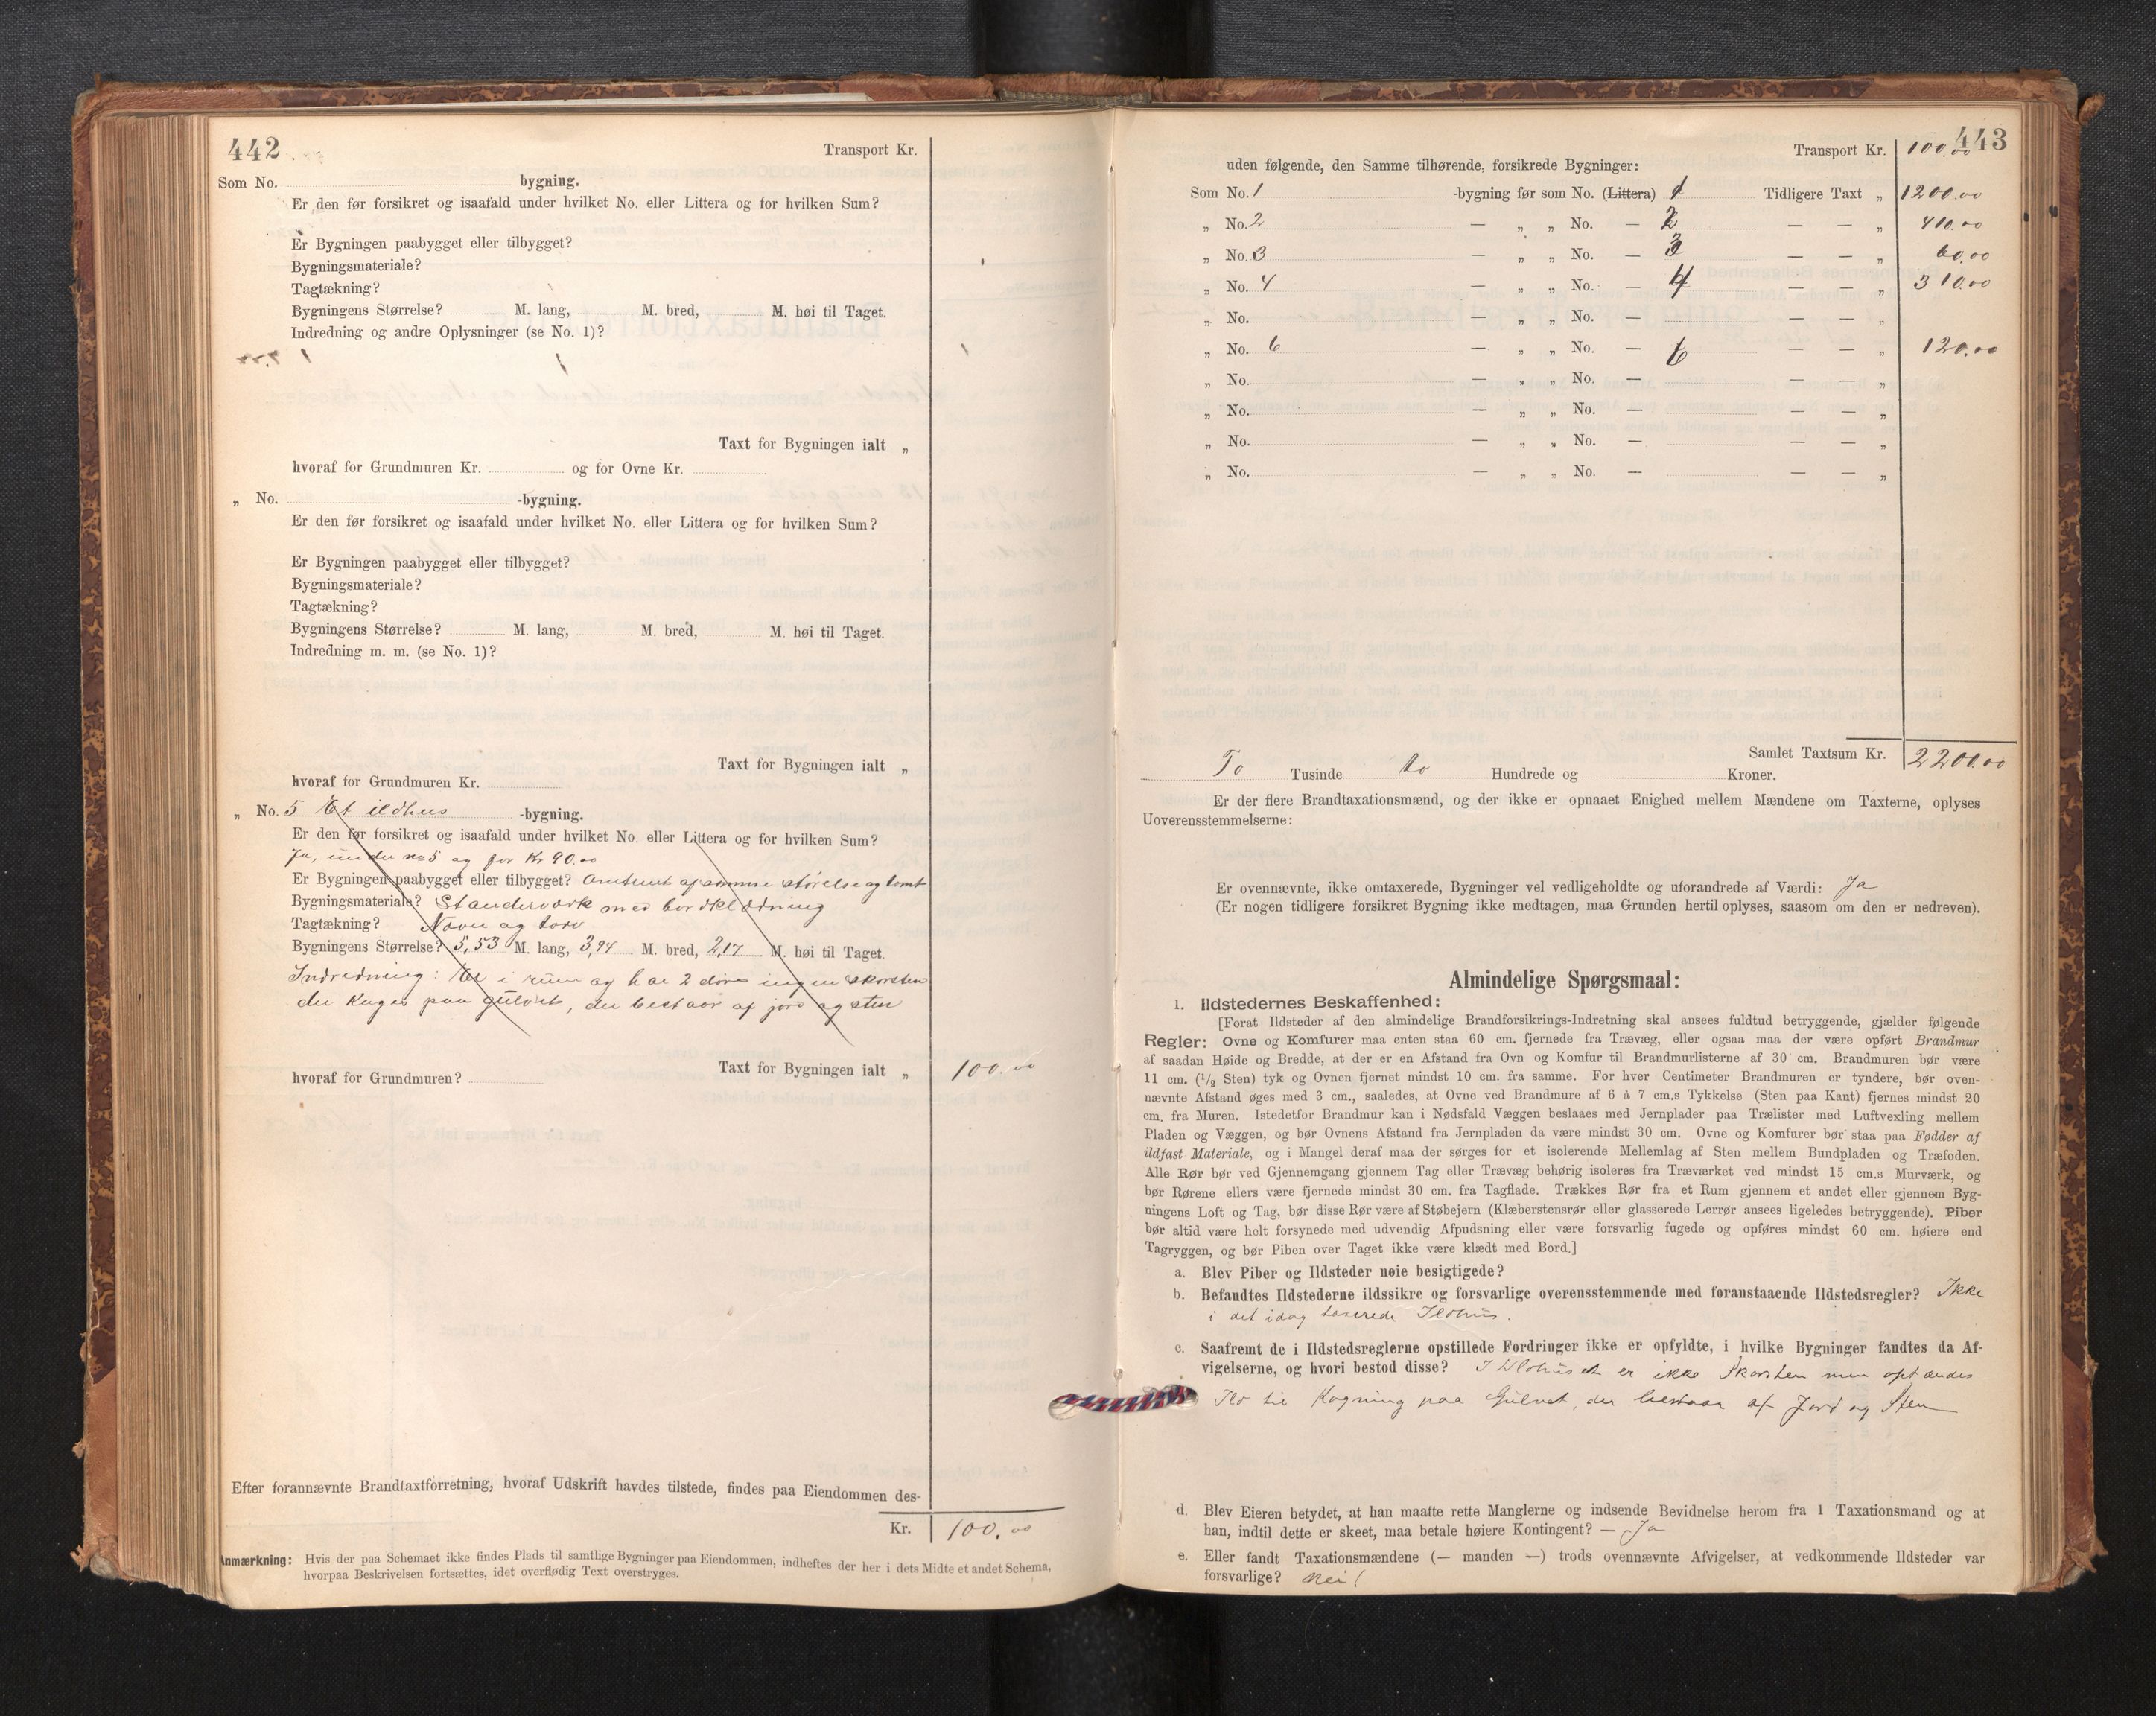 442
Transport Kr.
Som No. bygning.
Er den før forsikret og isaafald under hvilket No. eller Littera og for hvilken Sum?
Er Bygningen paabygget eller tilbygget?
Bygningsmateriale?
Tagtækning?
Bygningens Størrelse? M. lang, M. bred, M. høi til Taget.
Indredning og andre Oplysninger (se No. 1)?
Taxt for Bygningen ialt „
hvoraf for Grundmuren Kr. og for Ovne Kr.
„ No. -bygning.
Er den før forsikret og isaafald under hvilket No. eller Littera og for hvilken Sum?
Er Bygningen paabygget eller tilbygget?
Bygningsmateriale?
Tagtækning?
Bygningens Størrelse? M. lang, M. bred, M. høi til Taget.
Indredning m. m. (se No. 1)?
Taxt for Bygningen ialt „
hvoraf for Grundmuren Kr.
„ No. 5 Et ildhus -bygning.
Er den før forsikret og isaafald under hvilket No. eller Littera og for hvilken Sum?
Ja, under no 5 og for Kr 90.00
Er Bygningen paabygget eller tilbygget? af samme størelse og tomt
Bygningsmateriale? Standerværk med bordklædning
Tagtækning? Næver og torv
Bygningens Størrelse? 5,53 M. lang, 3,94 M. bred, 2,17 M. høi til Taget.
Indredning: i rum og har 2 døre ingen skorsten
der koges paa gulvet, der bestaar af jord og sten
Taxt for Bygningen ialt „ 100.00
hvoraf for Grundmuren?
Efter forannævnte Brandtaxtforretning, hvoraf Udskrift havdes tilstede, findes paa Eiendommen des-
Kr. 100.00
Anmærkning: Hvis der paa Schemaet ikke findes Plads til samtlige Bygninger paa Eiendommen, indheftes der her i dets Midte et andet Schema,
hvorpaa Beskrivelsen fortsættes, idet overflødig Text overstryges.
443
Transport Kr. 100.00
uden følgende, den Samme tilhørende, forsikrede Bygninger:
Som No. 1 -bygning før som No. (Littera) 1 Tidligere Taxt „ 1200.00
„ No. 2 — „ „ No. — 2 — — „ 410.00
„ No. 3 — „ „ No. — 3 — — „ 60.00
„ No. 4 — „ „ No. — 4 — — „ 310.00
„ No. — „ „ No. — — — „
„ No. 6 — „ „ No. — 6 — — „ 120.00
„ No. — „ „ No. — — — „
„ No. — „ „ No. — — — „
„ No. — „ „ No. — — — „
„ No. — „ „ No. — — — „
Samlet Taxtsum Kr. 2200.00
To Tusinde to Hundrede og Kroner.
Er der flere Brandtaxationsmænd, og der ikke er opnaaet Enighed mellem Mændene om Taxterne, oplyses
Uoverensstemmelserne:
Er ovennævnte, ikke omtaxerede, Bygninger vel vedligeholdte og uforandrede af Værdi: Ja
(Er nogen tidligere forsikret Bygning ikke medtagen, maa Grunden hertil oplyses, saasom om den er nedreven).
Almindelige Spørgsmaal:
1. Ildstedernes Beskaffenhed:
[Forat Ildsteder af den almindelige Brandforsikrings-Indretning skal ansees fuldtud betryggende, gjælder følgende
Regler: Ovne og Komfurer maa enten staa 60 cm. fjernede fra Trævæg, eller ogsaa maa der være opført Brandmur
af saadan Høide og Bredde, at der er en Afstand fra Ovn og Komfur til Brandmurlisterne af 30 cm. Brandmuren bør være
11 cm. (1/2 Sten) tyk og Ovnen fjernet mindst 10 cm. fra samme. For hver Centimeter Brandmuren er tyndere, bør oven-
nævnte Afstand øges med 3 cm., saaledes, at Ovne ved Brandmure af 6 à 7 cm.s Tykkelse (Sten paa Kant) fjernes mindst 20
cm. fra Muren. Istedetfor Brandmur kan i Nødsfald Væggen beslaaes med Jernplader paa Trælister med Luftvexling mellem
Pladen og Væggen, og bør Ovnens Afstand fra Jernpladen da være mindst 30 cm. Ovne og Komfurer bør staa paa Fødder af
ildfast Materiale, og i Mangel deraf maa der sørges for et isolerende Mellemlag af Sten mellem Bundpladen og Træfoden.
Alle Rør bør ved Gjennemgang gjennem Tag eller Trævæg behørig isoleres fra Træværket ved mindst 15 cm.s Murværk, og
bør Rørene ellers være fjernede mindst 30 cm. fra Tagflade. Trækkes Rør fra et Rum gjennem et andet eller gjennem Byg-
ningens Loft og Tag, bør disse Rør være af Støbejern (Klæberstensrør eller glasserede Lerrør ansees ligeledes betryggende). Piber
bør altid være helt forsynede med udvendig Afpudsning eller være forsvarlig fugede og opføres mindst 60 cm. høiere end
Tagryggen, og bør Piben over Taget ikke være klædt med Bord.]
a. Blev Piber og Ildsteder nøie besigtigede?
b. Befandtes Ildstederne ildssikre og forsvarlige overensstemmende med foranstaaende Ildstedsregler? Ikke
i det idag taxerede Ildhus.
c. Saafremt de i Ildstedsreglerne opstillede Fordringer ikke er opfyldte, i hvilke Bygninger fandtes da Af-
vigelserne, og hvori bestod disse? I Ildhuset er ikke Skorsten men optændes
Ild til Kogning paa Gulvet, der bestaar af Jord og Sten
d. Blev Eieren betydet, at han maatte rette Manglerne og indsende Bevidnelse herom fra 1 Taxationsmand og at
han, indtil dette er skeet, maa betale høiere Kontingent? — Ja
e. Eller fandt Taxationsmændene (— manden —) trods ovennævnte Afvigelser, at vedkommende Ildsteder var
forsvarlige? Nei!